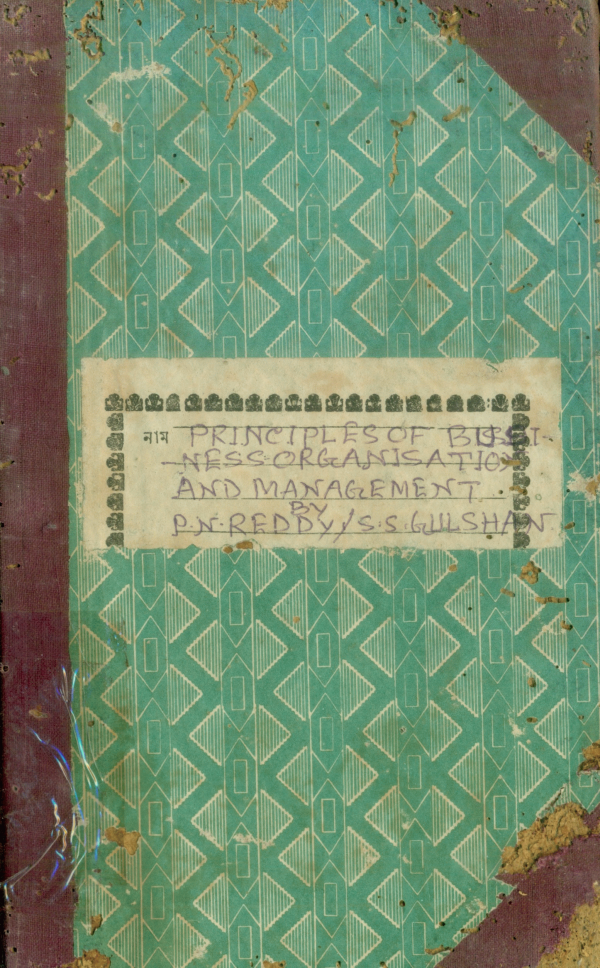 নাম PRINCIPLES OF BUSI-
NESS ORGANISATION
AND MANAGEMENT
BY
P.N. REDDY / S.S. GULSHAN